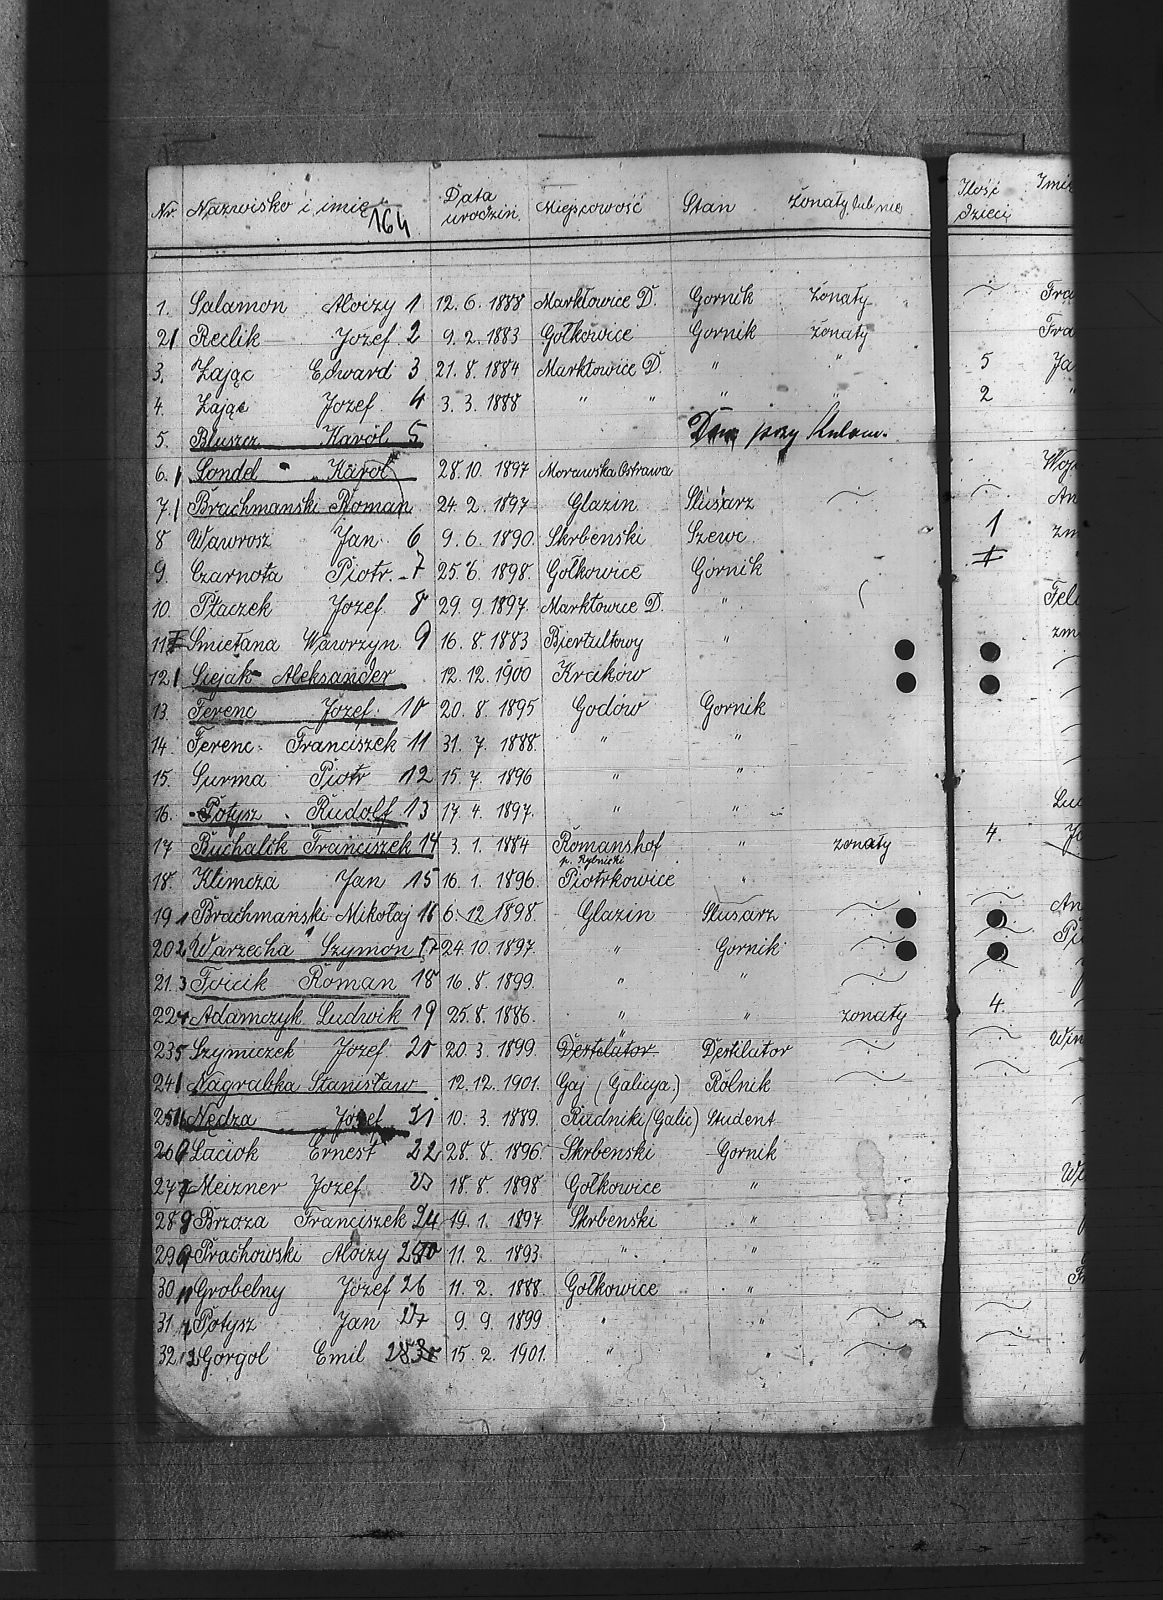 Nr. Nazwisko i imię 164 Data urodzin Miejscowość Stan Żonaty lub nie Ilość dzieci Imię
1. Salamon Aloizy 1 12. 6. 1888 Markłowice D. Gornik żonaty Fra
2 Reclik Jozef 2 9. 2. 1883 Gołkowice Gornik żonaty Fra
3. Zając Edward 3 21. 8. 1884 Markłowice D. " " 5 Ja
4. Zając Jozef 4 3. 3. 1888 " " " " 2 "
5. Bluszcz Karol 5 przy
6. Londel Karol 28. 10. 1897 Morawska Ostrawa
7 Brachmanski Roman 24. 2. 1897 Glazin Slusarz An
8 Wawrosz Jan 6 9. 6. 1890. Skrbenski Szewc 1 zm
9. Czarnota Piotr 7 25. 6. 1898. Gołkowice Gornik
10. Ptaczek Jozef 8 29. 9. 1897. Markłowice D. " Feli
11 Smietana Wawrzyn 9 16. 8. 1883 Biertultowy " zm
12 Siejak Aleksander 12. 12. 1900 Kraków
13. Ferenc Jozef 10 20. 8. 1895 Godów Gornik
14. Ferenc Franciszek 11 31. 7. 1888. " "
15. Surma Piotr 12 15. 7. 1896 " "
16. Potysz Rudolf 13 17. 4. 1897. " "
17 Buchalik Franciszek 14 3. 1. 1884 Romanshof " żonaty 4.
p. Rybnicki
18. Klimcza Jan 15 16. 1. 1896. Piotrkowice "
19 1 Brachmanski Mikołaj 16 6. 12. 1898. Glazin Slusarz An
20 2 Warzecha Szymon 17 24. 10. 1897. " Gornik
21. 3 Fvicik Roman 18 16. 8. 1899. " "
22 4 Adamczyk Ludwik 19 25. 8. 1886. " " żonaty 4.
23 5 Szymiczek Jozef 20 20. 3. 1899. Destilator Destilator Win
24 Nagrabka Stanisław 12. 12. 1901. Gaj (Galicya.) Rolnik
25 Nędza Józef 21 10. 3. 1889. Rudniki (Galic) Student
26 Laciok Ernest 22 28. 8. 1896. Skrbenski Gornik
27 7 Meizner Jozef 23 18. 8. 1898 Gołkowice "
28 Brzoza Franciszek 24 19. 1. 1897 Skrbenski "
29 Prachowski Aloizy 11. 2. 1893. " "
30 Grobelny Józef 26 11. 2. 1888. Gołkowice "
31 Potysz Jan 27 9. 9. 1899 " "
32 Gorgol Emil 28 15. 2. 1901. " "